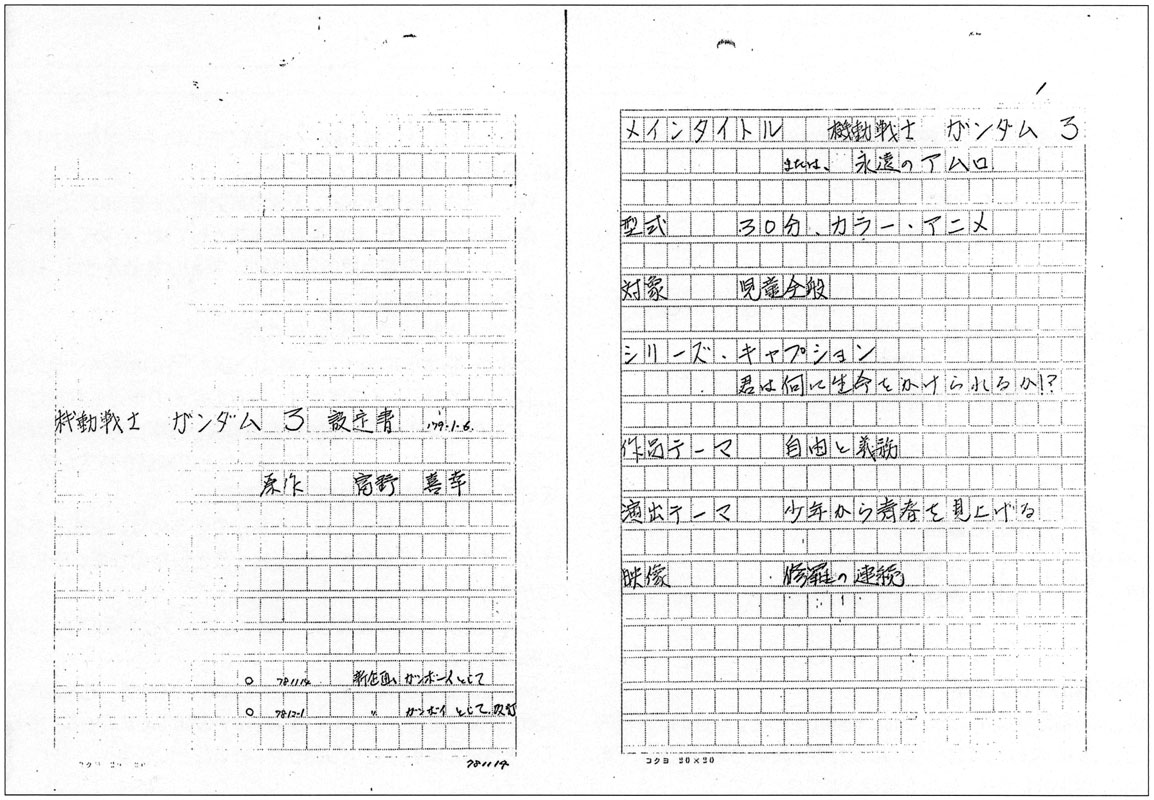 機動戦士 ガンダム 3 設定書 '79.1.6.
原作 富野 喜幸
○ 781114 新企画 ガンボーイとして
○ 7812-1 〃 ガンボイとして改訂
781114
メインタイトル 機動戦士 ガンダム 3
または、永遠のアムロ
型式 30分、カラー・アニメ
対象 児童全般
シリーズ・キャプション
君は何に生命をかけられるか!?
作品テーマ 自由と義務
演出テーマ 少年から青春を見上げる
映像 修羅の連続
コクヨ 20×20